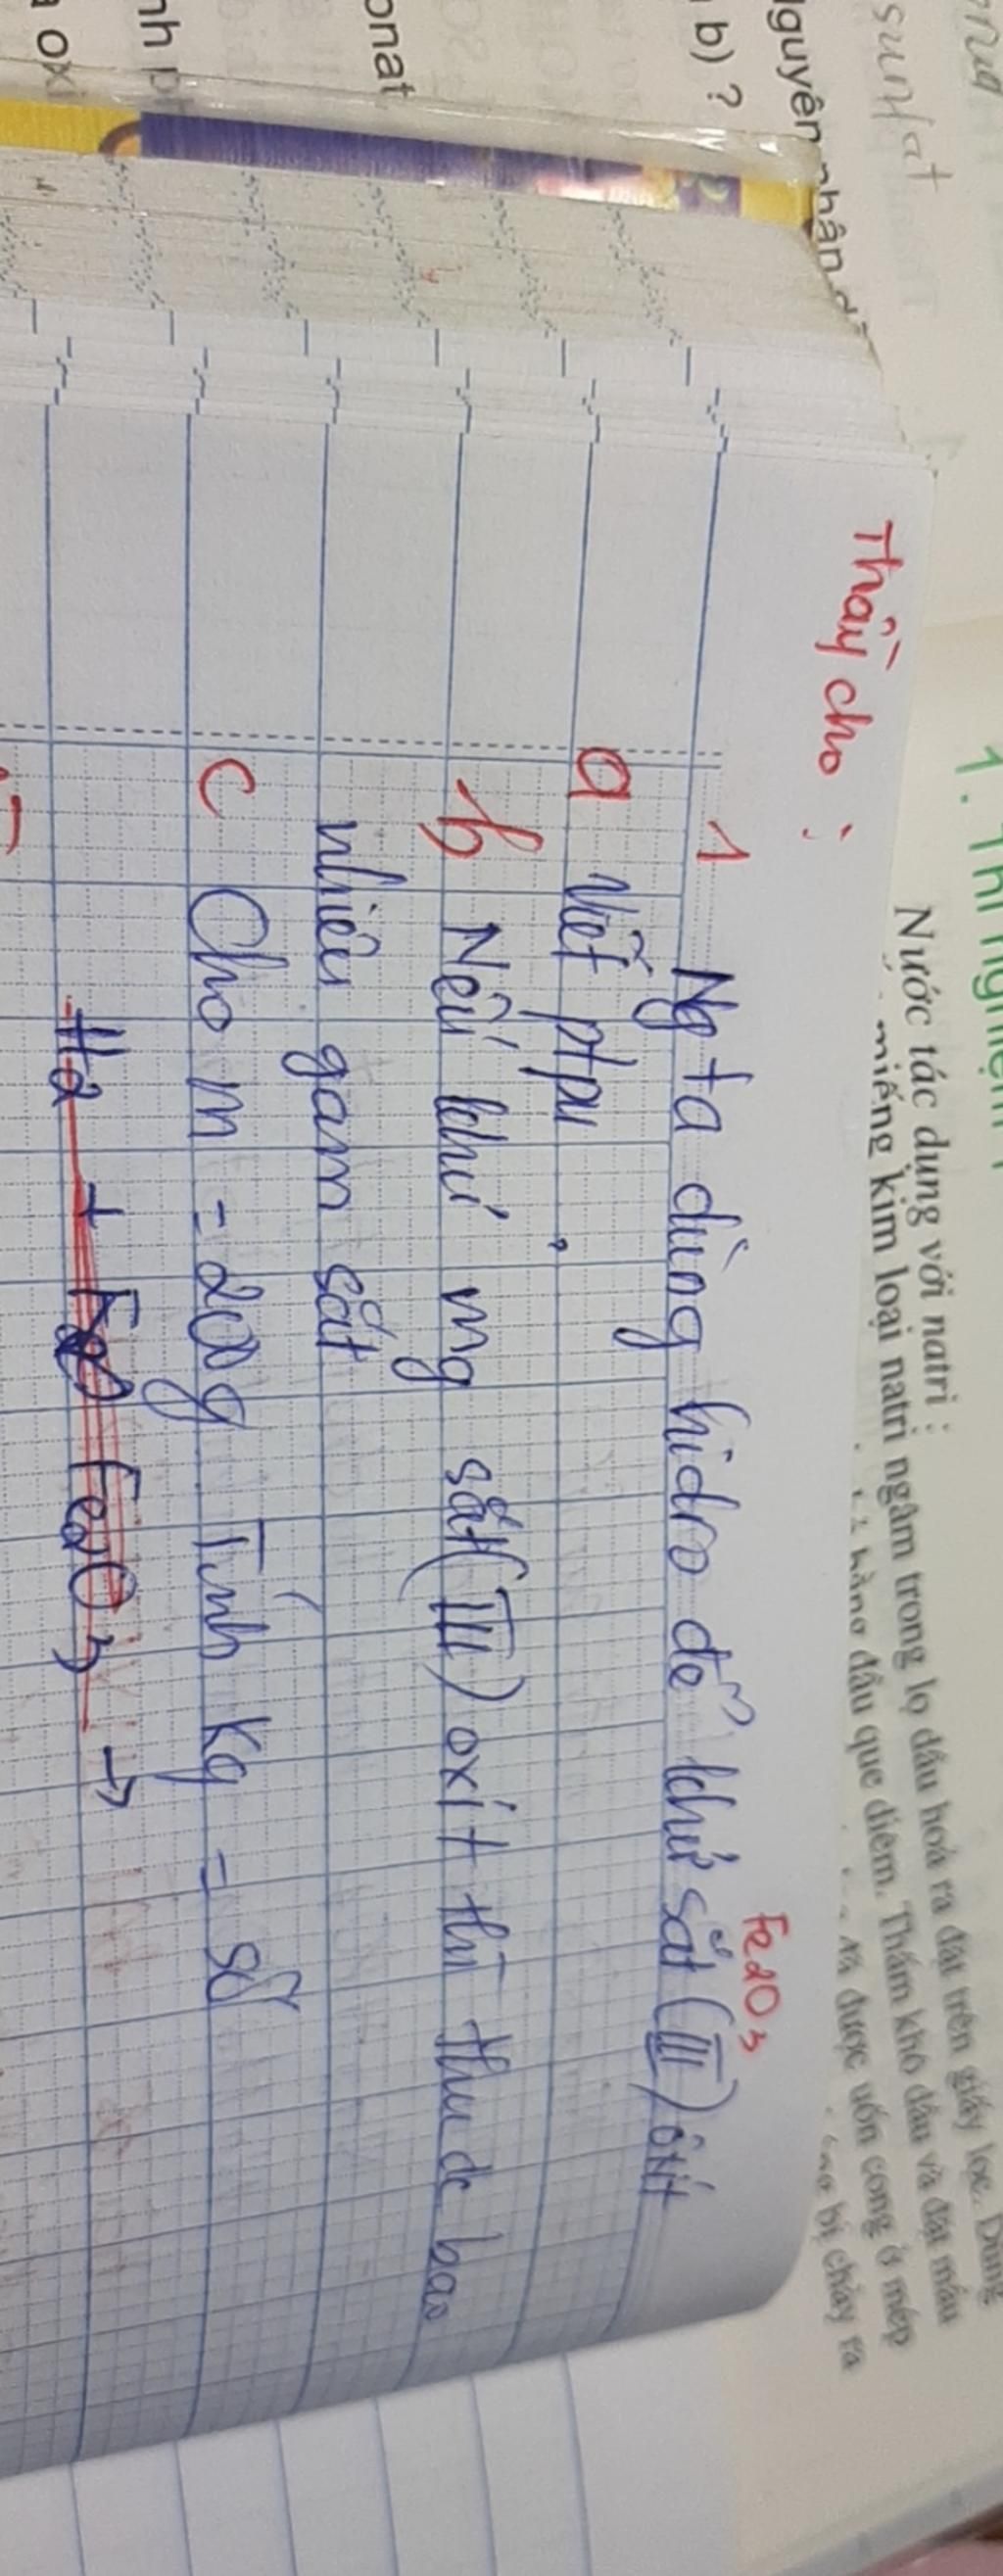 sunfat
Nguyên nhân
b) ?
onat
oxi
1. Thí nghiệm
Nước tác dụng với natri :
miếng kim loại natri ngâm trong lọ dầu hoả ra đặt trên giấy lọc. Dùng
đầu que diêm. Thấm khô dầu và đặt mẩu
được uốn cong ở mép
bị chảy ra
Thầy cho :
Fe2O3
1 Ng ta dùng hidro để khử sắt (III) oxit
a Viết ptpư .
b Nếu khử mg sắt (III) oxit thì thu đc bao
nhiêu gam sắt
c Cho m = 200g Tính Kq = số
H2 + FeO Fe2O3 →